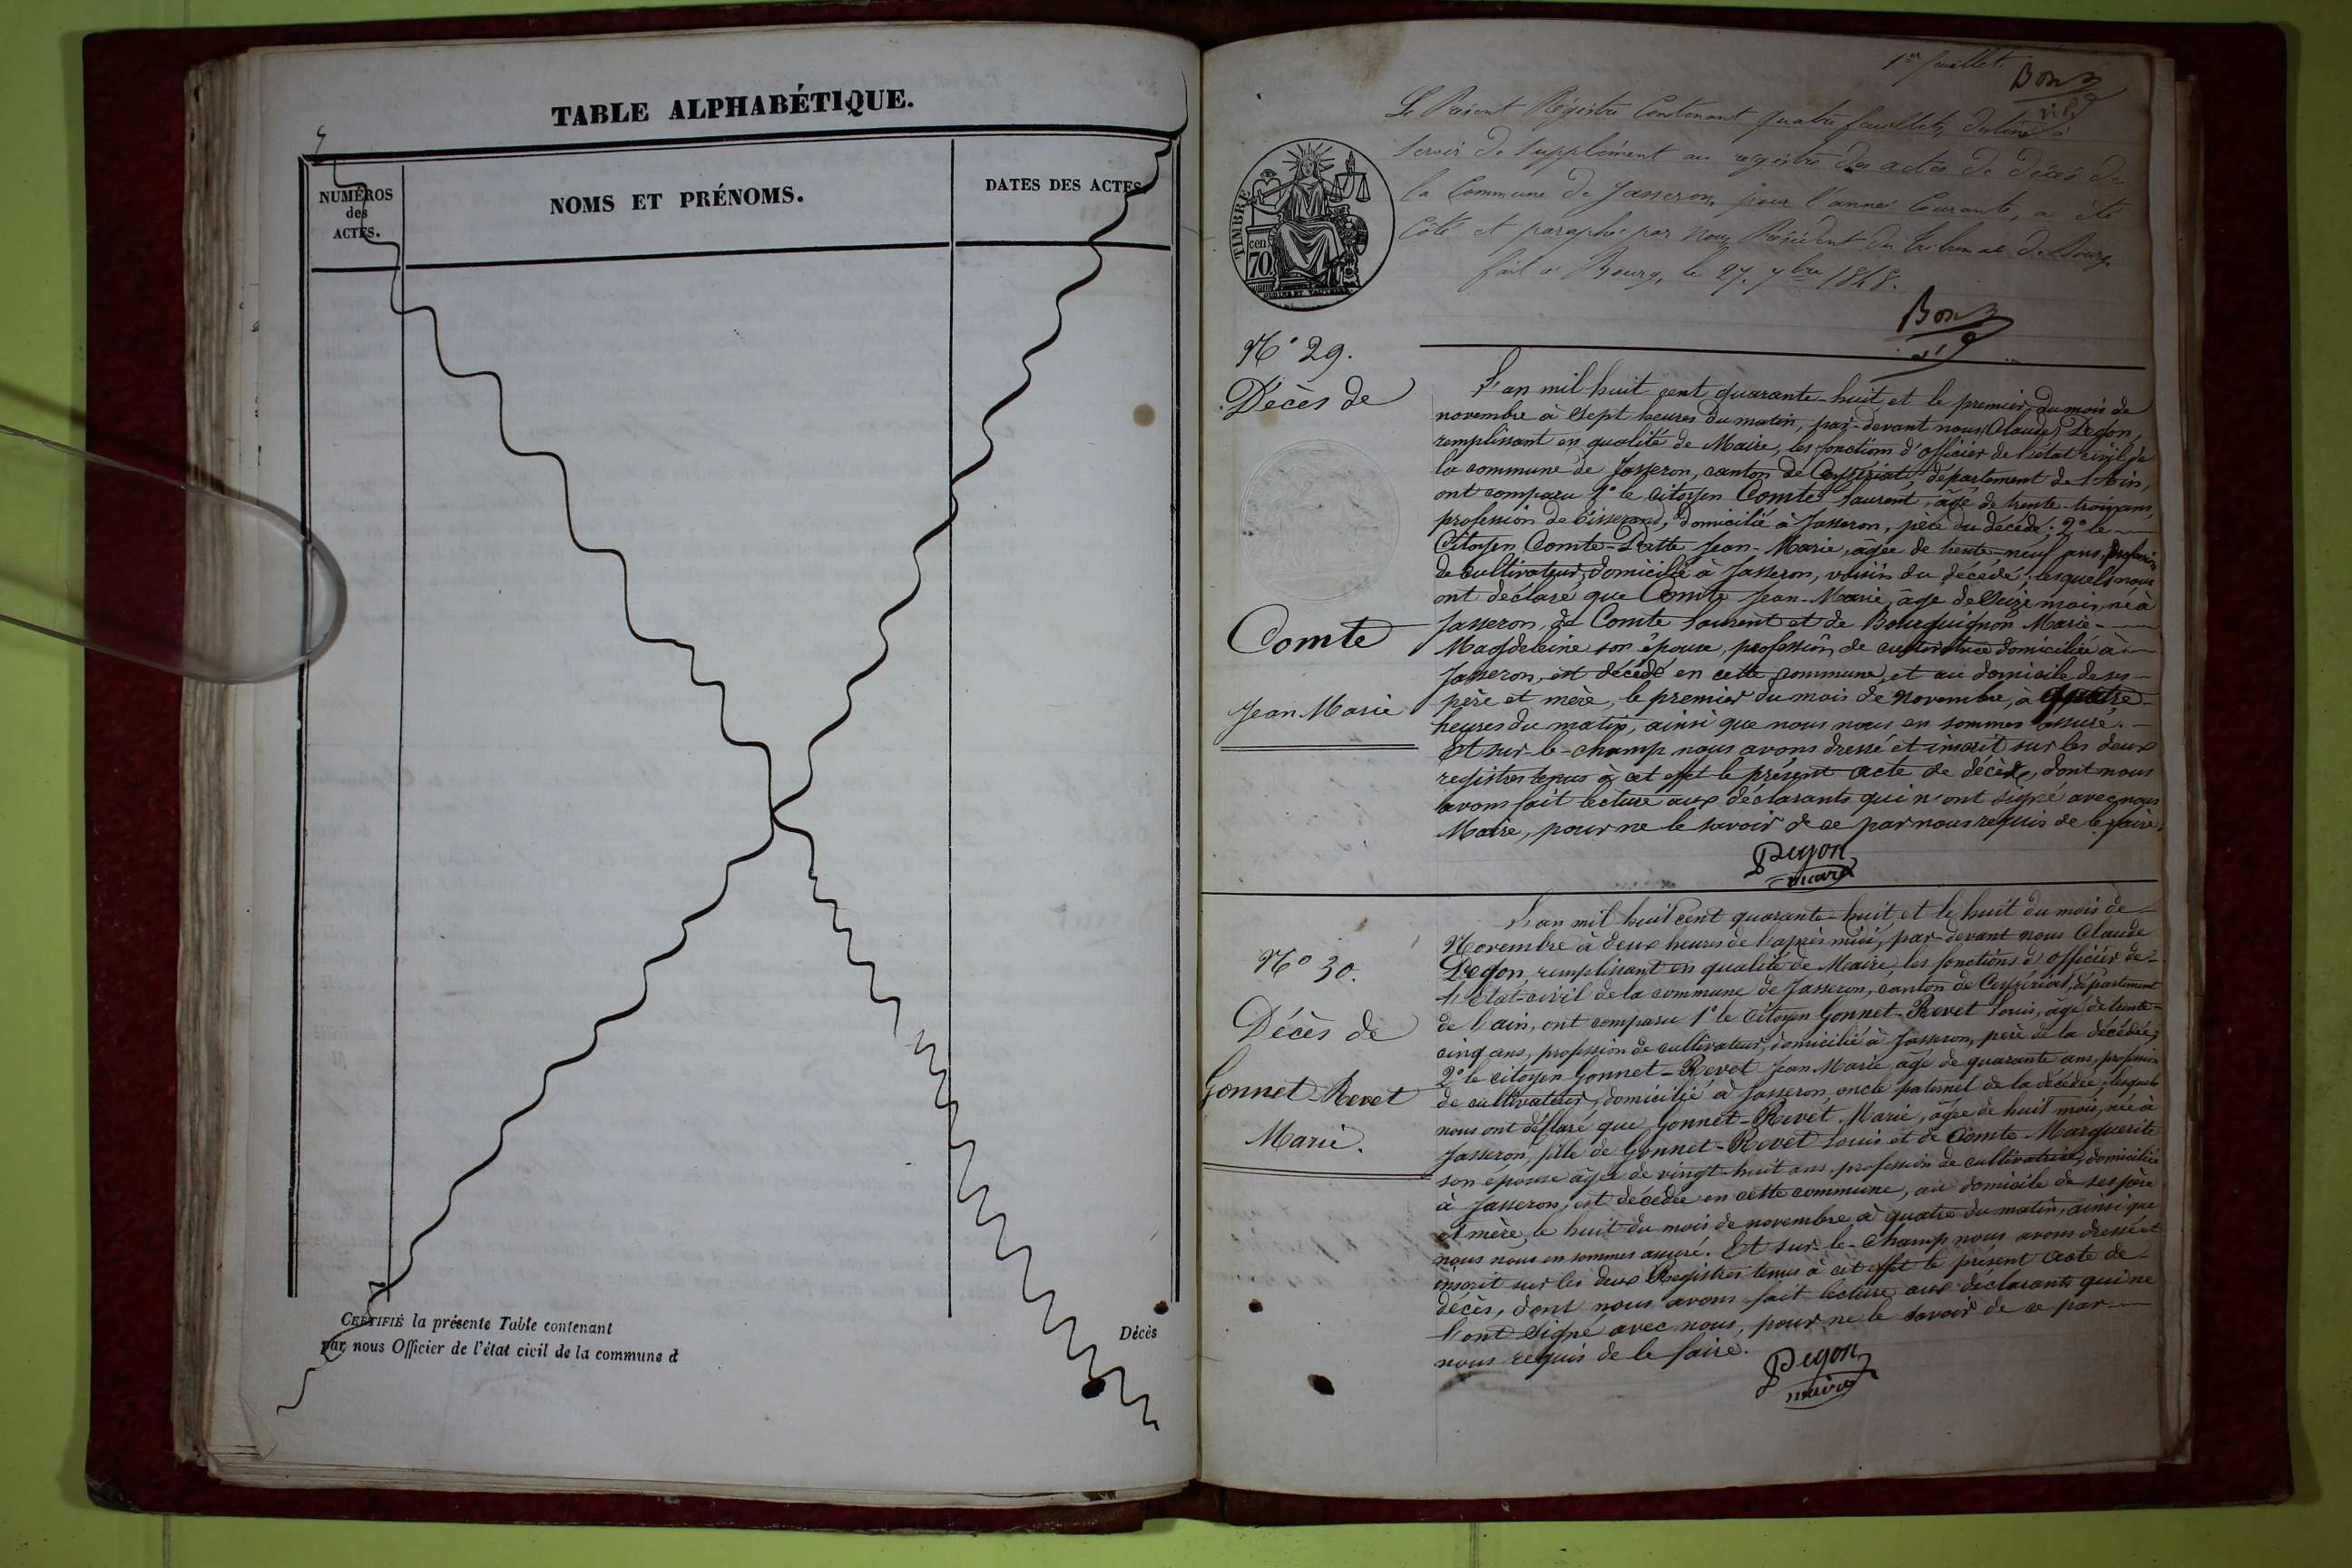 TABLE ALPHABÉTIQUE.
NUMÉROS
des
ACTES.
NOMS ET PRÉNOMS.
DATES DES ACTES
CERTIFIÉ la présente Table contenant
Décès
par nous Officier de l'état civil de la commune d
1er feuillet.
Bon
Le Présent Régistre Contenant quatre feuillets, destiné à
servir de Supplément au registre des actes de décès de
la Commune de Jasseron, pour l'année Courante, a été
Côté et paraphé par Nous Président du tribunal de Bourg.
fait à Bourg, le 27. 7bre 1848.
Bon
TIMBRE
70 cen
N° 29.
Décès de
Comte
Jean Marie
L'an mil huit cent quarante-huit et le premier du mois de
novembre à sept heures du matin, par-devant nous Claude Pegon,
remplissant en qualité de Maire, les fonctions d'officier de l'état civil de
la commune de Jasseron, canton de Ceyzériat, département de l'Ain,
ont comparu 1° le Citoyen Comte Laurent, âgé de trente-trois ans,
profession de tisserand, domicilié à Jasseron, père du décédé; 2° le
Citoyen Comte-Lutte Jean-Marie, âgée de trente-neuf ans, profession
de cultivateur, domicilié à Jasseron, voisin du décédé; lesquels nous
ont déclaré que Comte Jean-Marie, âgé de seize mois, né à
Jasseron, de Comte Laurent et de Bourguignon Marie-
Magdeleine son épouse, profession de cultivatrice domiciliée à
Jasseron, est décédé en cette commune, et au domicile de ses
père et mère, le premier du mois de novembre, à quatre
heures du matin, ainsi que nous nous en sommes assuré.
Et sur-le-champ nous avons dressé et inscrit sur les deux
registres tenus à cet effet le présent acte de décès, dont nous
avons fait lecture aux déclarants qui n'ont signé avec nous
Maire, pour ne le savoir de ce par nous requis de le faire.
Pegon
maire
N° 30.
Décès de
Gonnet-Revet
Marie.
L'an mil huit cent quarante-huit et le huit du mois de
Novembre à deux heures de l'après midi, par-devant nous Claude
Pegon, remplissant en qualité de Maire, les fonctions d'officier de
l'état-civil de la commune de Jasseron, canton de Ceyzériat, département
de l'ain, ont comparu 1° le Citoyen Gonnet-Revet Louis, âgé de trente-
cinq ans, profession de cultivateur, domicilié à Jasseron, père de la décédée;
2° le citoyen Gonnet-Revet Jean Marie âgé de quarante ans, profession
de cultivateur, domicilié à Jasseron, oncle paternel de la décédée; lesquels
nous ont déclaré que Gonnet-Revet Marie, âgée de huit mois, née à
Jasseron, fille de Gonnet-Revet Louis et de Comte Marguerite
son épouse âgée de vingt-huit ans, profession de cultivatrice, domiciliée
à Jasseron, est décédée en cette commune, au domicile de ses père
et mère, le huit du mois de novembre à quatre du matin, ainsi que
nous nous en sommes assuré. Et sur-le-champ nous avons dressé et
inscrit sur les deux Registres tenus à cet effet le présent acte de
décès, dont nous avons fait lecture aux déclarants qui ne
l'ont signé avec nous, pour ne le savoir de ce par
nous requis de le faire.
Pegon
maire